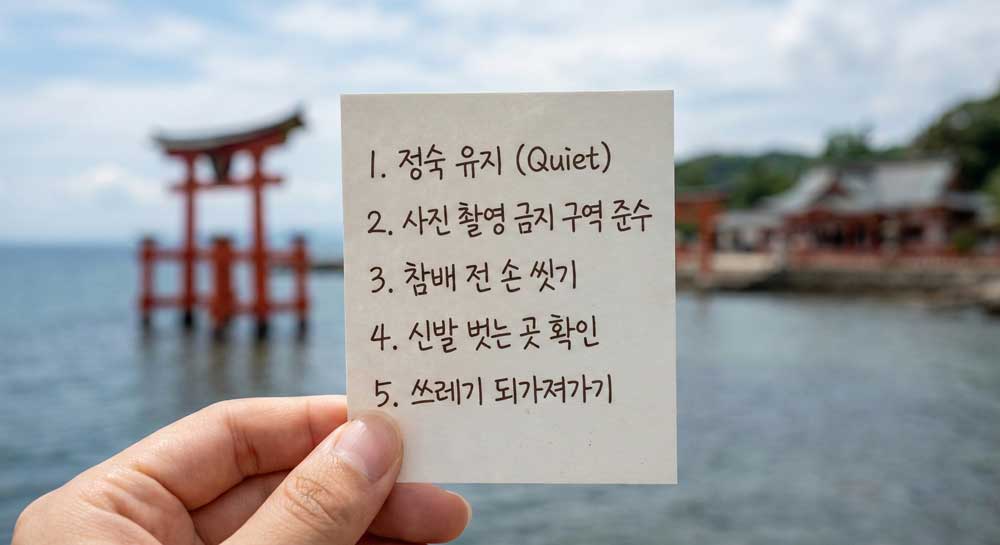 1. 정숙 유지 (Quiet)
2. 사진 촬영 금지 구역 준수
3. 참배 전 손 씻기
4. 신발 벗는 곳 확인
5. 쓰레기 되가져가기